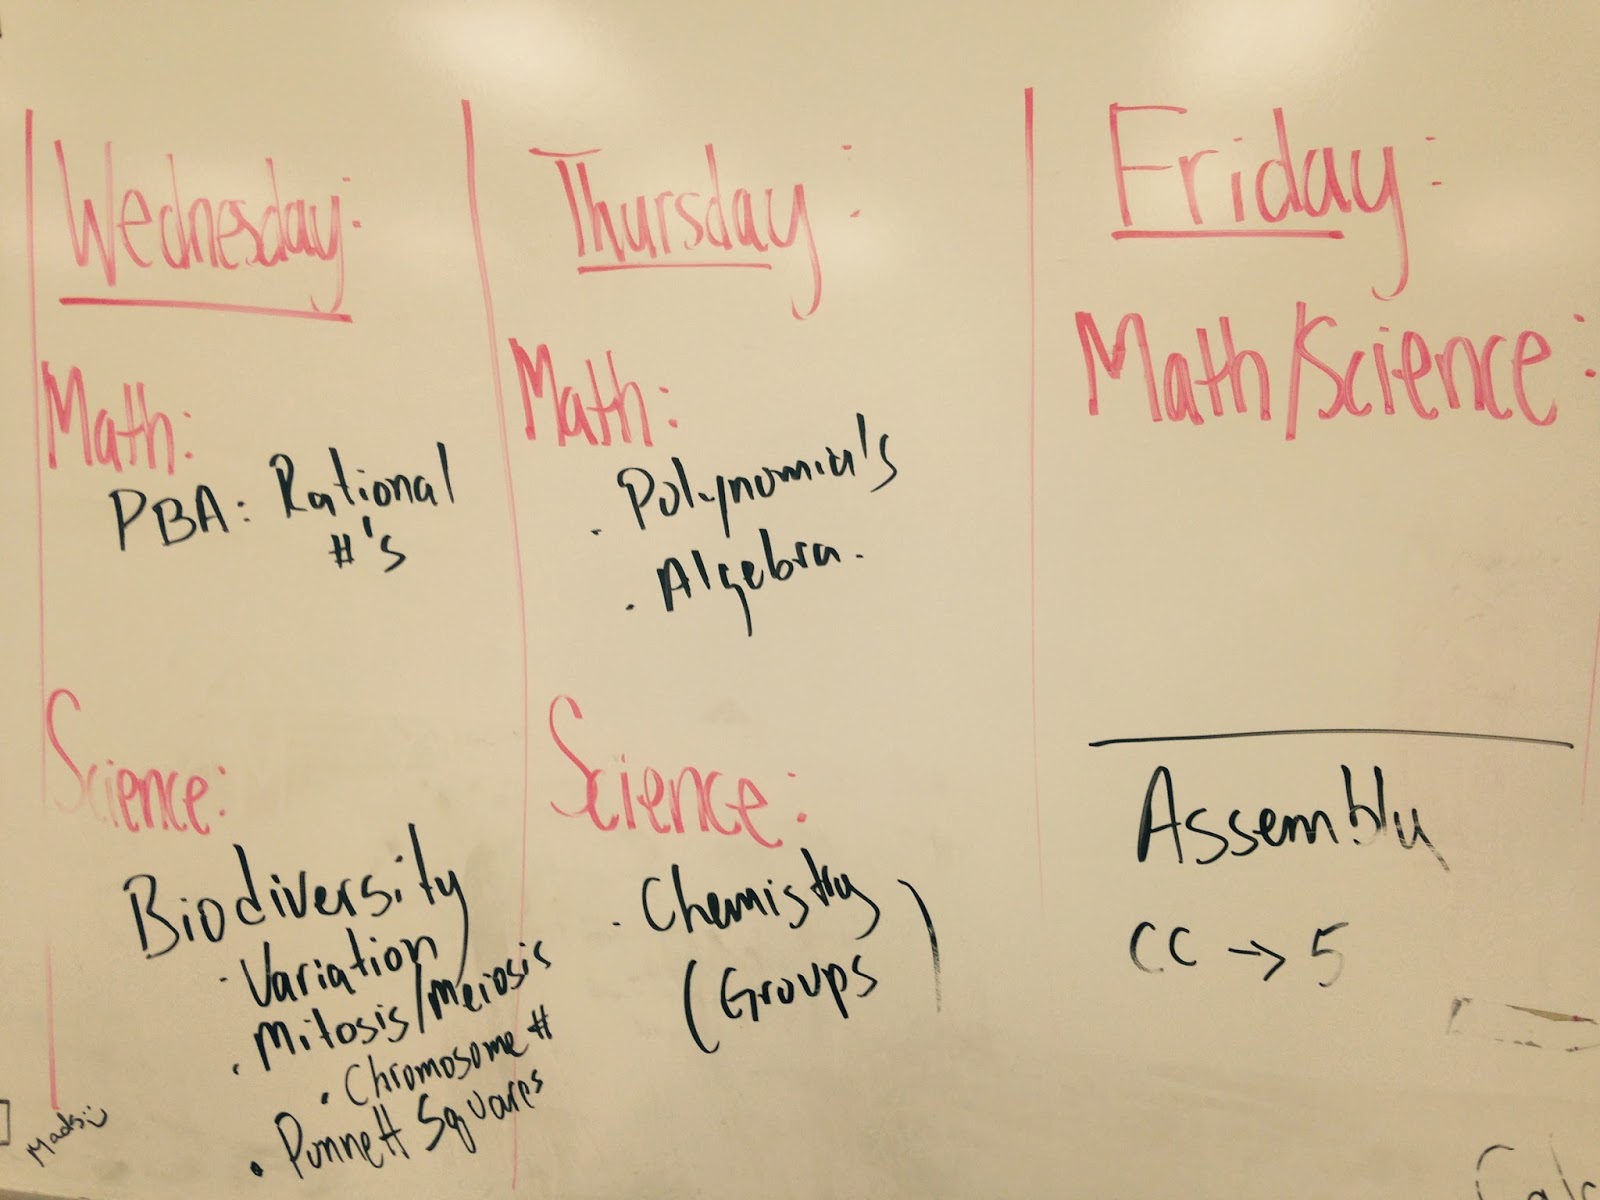 Wednesday:
Math:
PBA: Rational
#'s
Science:
Biodiversity
· Variation
· Mitosis/Meiosis
· Chromosome #
· Punnett Squares
Mads
Thursday:
Math:
· Polynomial's
· Algebra.
Science:
· Chemistry
(Groups)
Friday:
Math/Science:
Assembly
CC → 5